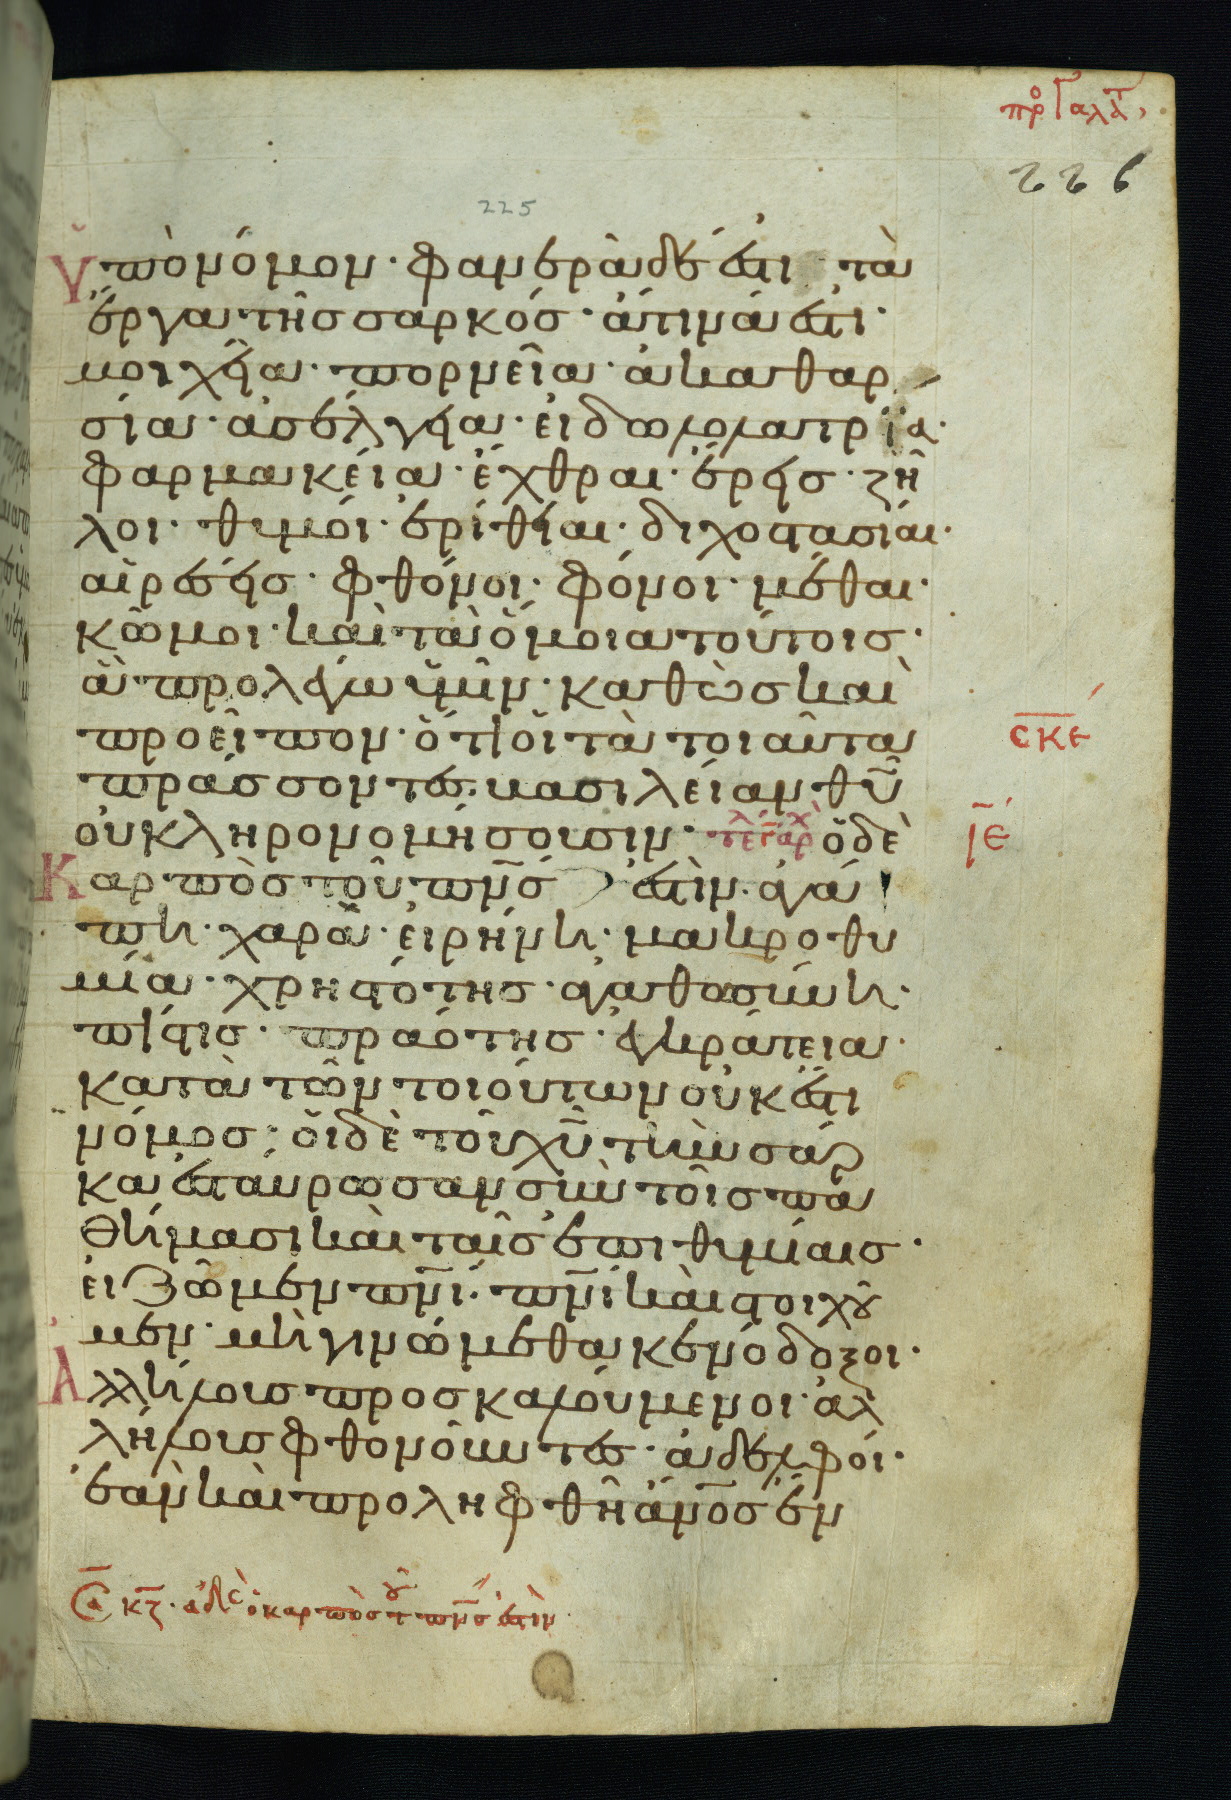 πρὸ Γαλατ
226
225
ὑπὸ νόμον· φανερὰ δέ ἐστι τὰ
ἔργα τῆς σαρκός· ἅτινά ἐστι·
μοιχεία· πορνεῖα· ἀκαθαρ
σία· ἀσέλγεια· εἰδωλολατρία·
φαρμακεία· ἔχθραι· ἔρεις· ζῆ
λοι· θυμοί· ἐρίθειαι· διχοστασίαι·
αἱρέσεις· φθόνοι· φόνοι· μέθαι·
κῶμοι· καὶ τὰ ὅμοια τούτοις·
ἃ προλέγω ὑμῖν· καθὼς καὶ
προεῖπον· ὅτι οἱ τὰ τοιαῦτα
πράσσοντες βασιλείαν θῦ
οὐ κληρονομήσουσιν· τε ἀρχ ὁ δὲ
Καρπὸς τοῦ πνς ἐστὶν· ἀγά
πη· χαρὰ· εἰρήνη· μακροθυ
μία· χρηστότης· ἀγαθοσύνη·
πίστις· πραότης· ἐγκράτεια·
κατὰ τῶν τοιούτων οὐκ ἔστι
νόμος· οἱ δὲ τοῦ χῦ τὴν σάρ
κα ἐσταύρωσαν σὺν τοῖς πα
θήμασι καὶ ταῖς ἐπιθυμίαις·
εἰ ζῶμεν πνι· πνι καὶ στοιχῶ
μεν· μὴ γινώμεθα κενόδοξοι·
Ἀλλήλοις προσκαλούμενοι· ἀλ
λήλοις φθονοῦντες· ἀδελφοί·
ἐὰν καὶ προληφθῆ ἄνος ἐν
σκε
ιε
κζ· ἀδε ὁ καρπὸς τοῦ πνς ἐστὶν